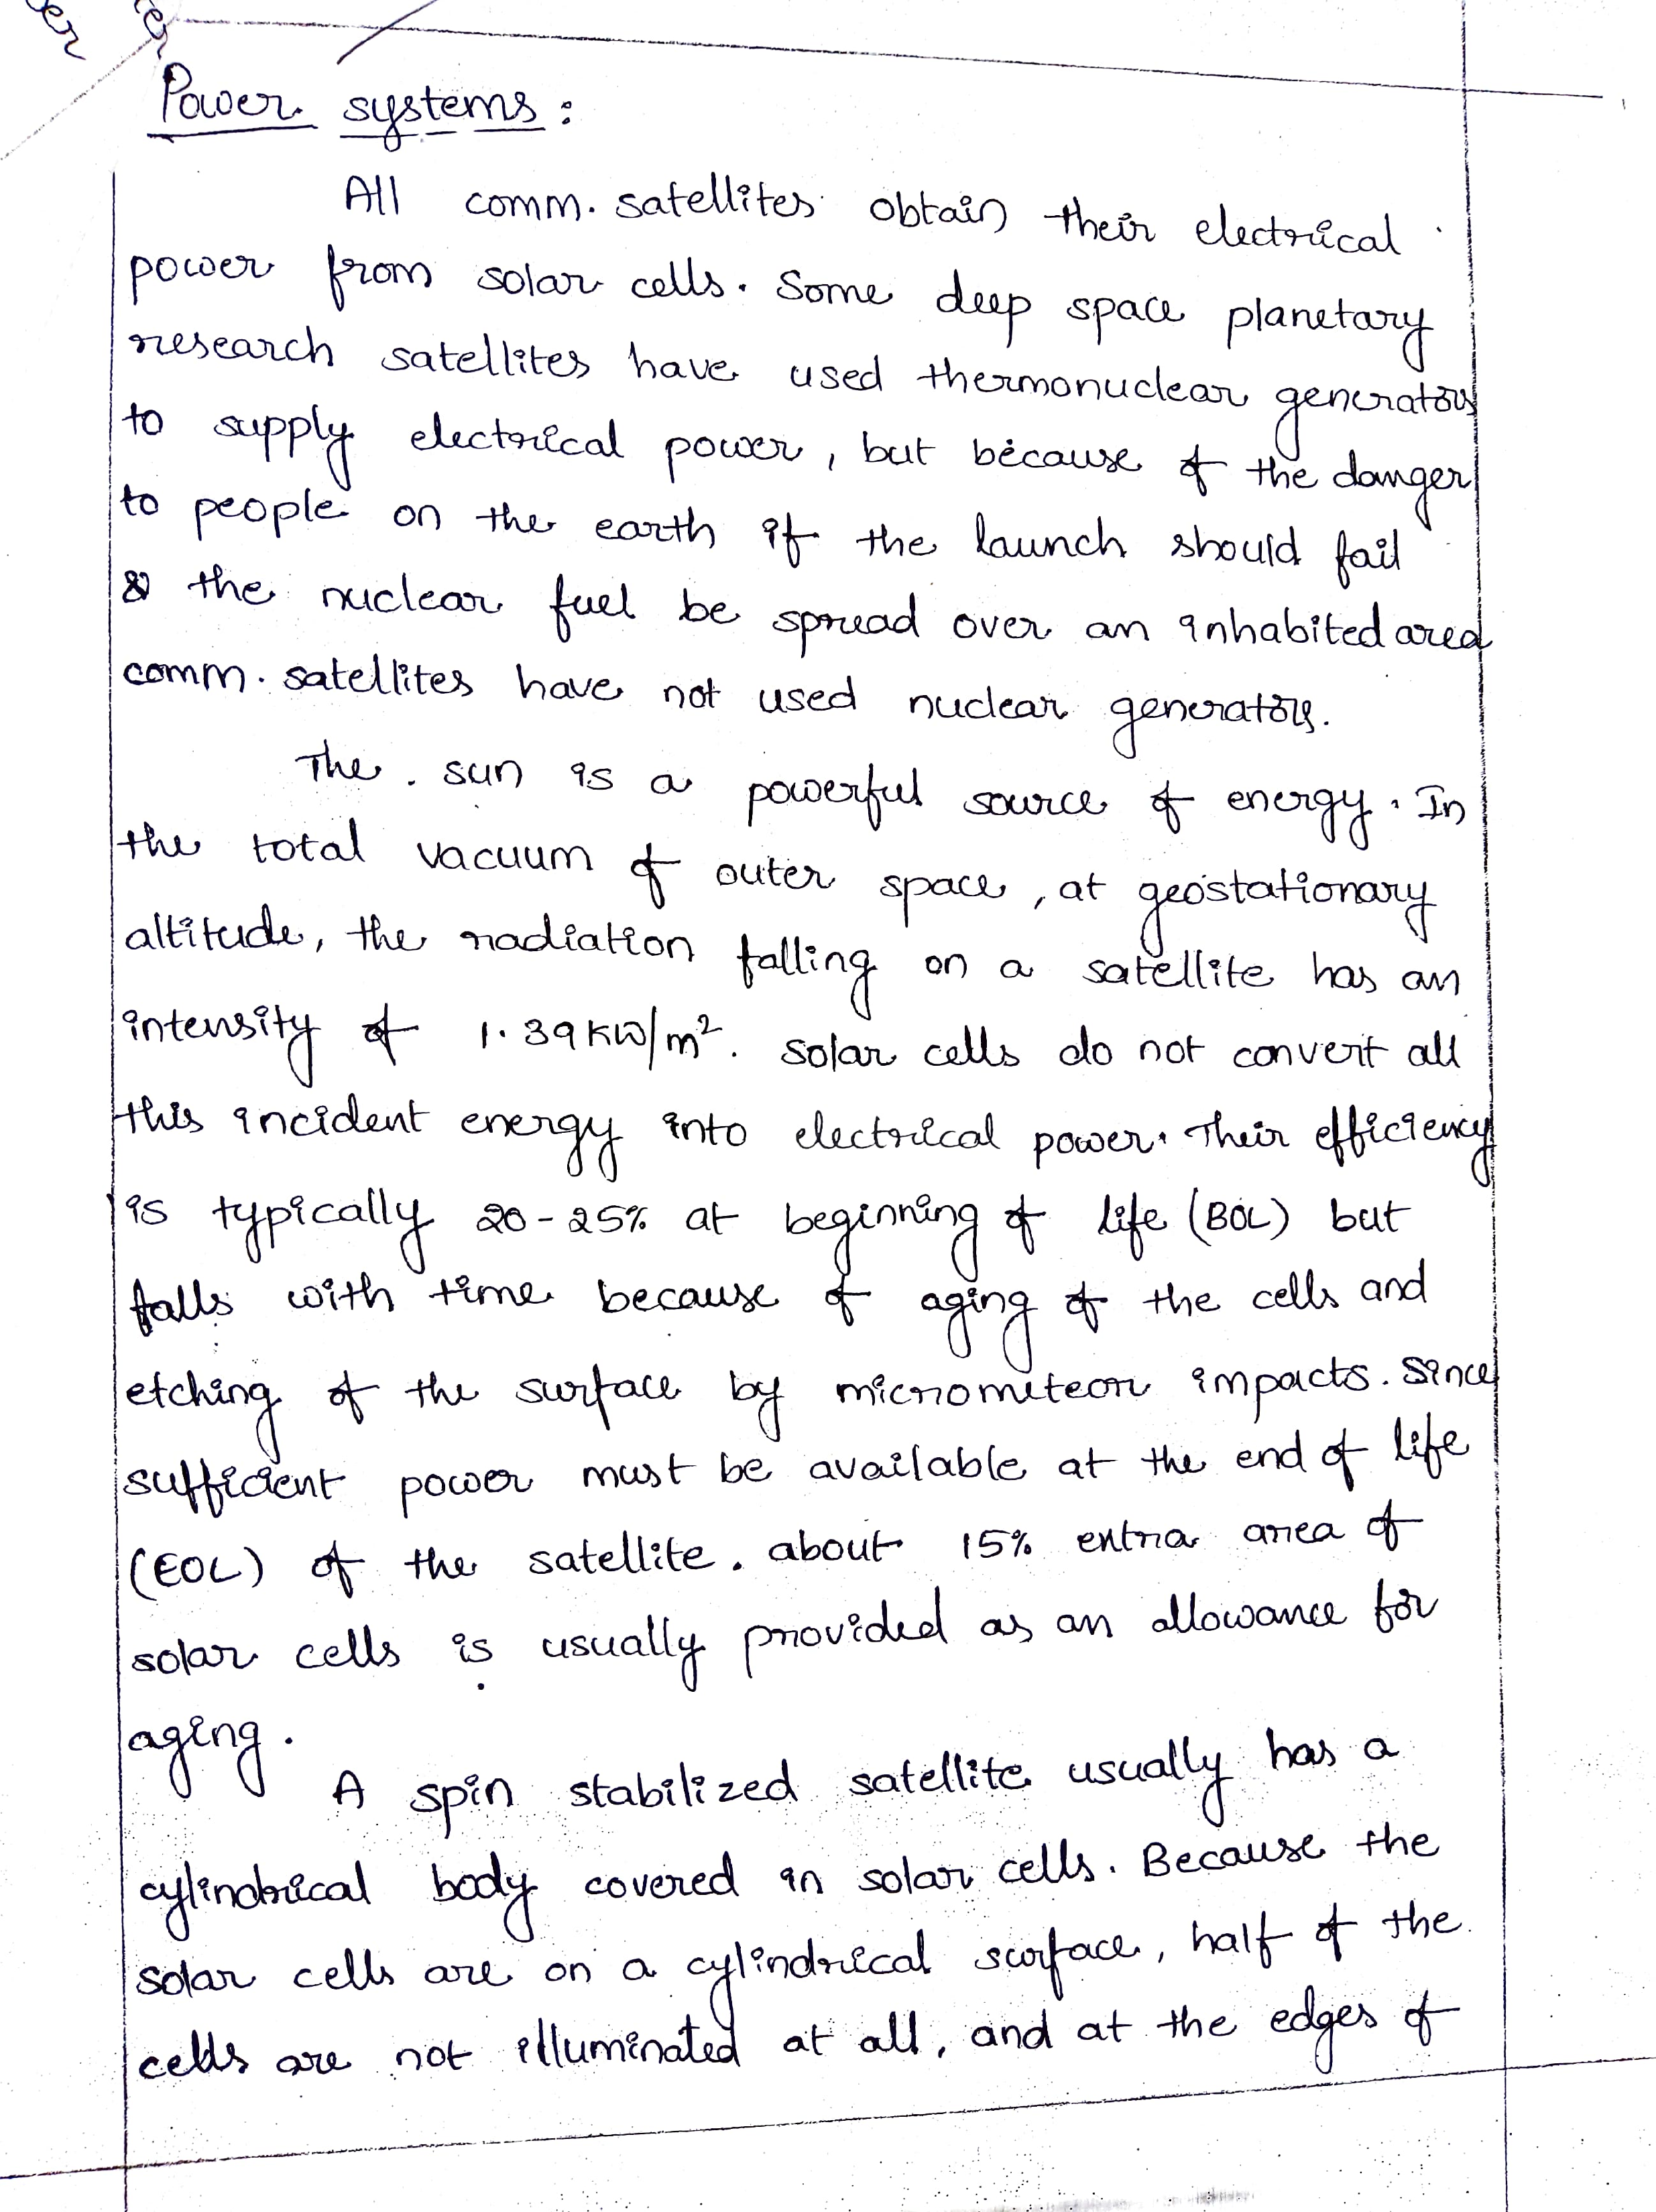 Power systems :
All comm. satellites obtain their electrical
power from solar cells. Some deep space planetary
research satellites have used thermonuclear generators
to supply electrical power, but because of the danger
to people on the earth if the launch should fail
& the nuclear fuel be spread over an inhabited area
comm. satellites have not used nuclear generators.
The sun is a powerful source of energy. In
the total vacuum of outer space, at geostationary
altitude, the radiation falling on a satellite has an
intensity of 1.39 KW/m². solar cells do not convert all
this incident energy into electrical power. Their efficiency
is typically 20-25% at beginning of life (BOL) but
falls with time because of aging of the cells and
etching of the surface by micrometeor impacts. Since
sufficient power must be available at the end of life
(EOL) of the satellite. about 15% extra area of
solar cells is usually provided as an allowance for
aging.
A spin stabilized satellite usually has a
cylindrical body covered in solar cells. Because the
solar cells are on a cylindrical surface, half of the
cells are not illuminated at all, and at the edges of